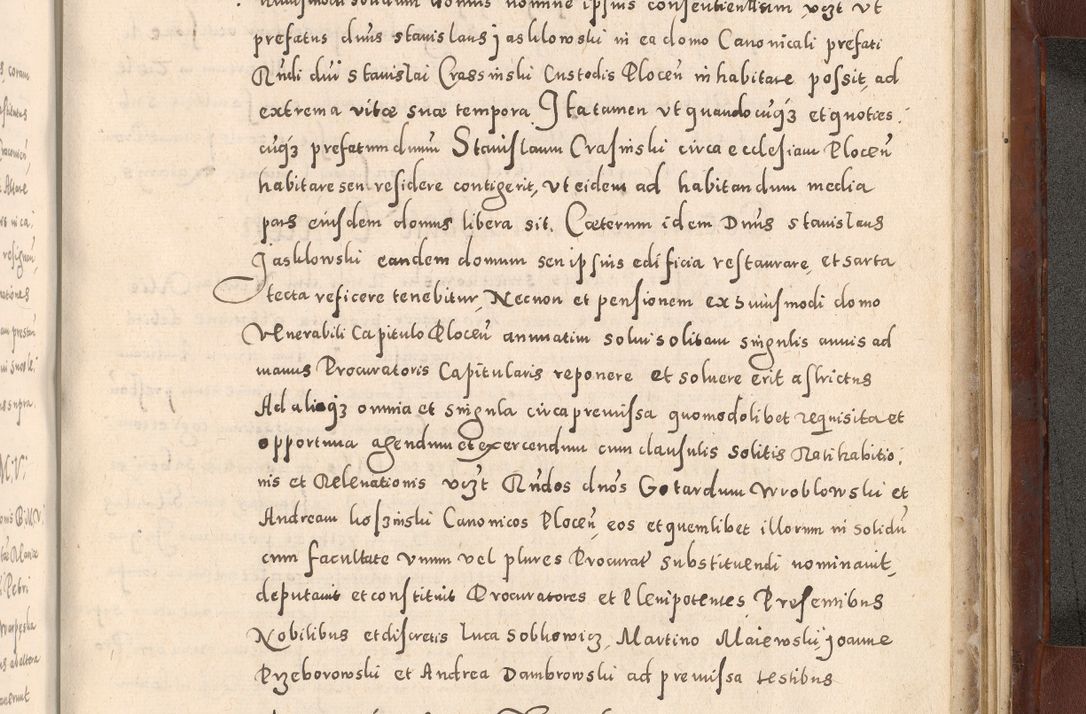 huiusmodi solidum domus nomine ipsius consentientium vczt vt
prefatus dnus stanislaus Jasklowski in ea domo Canonicali prefati
Rndi dni stanislai Crassinski Custodis Plocen inhabitare possit, ad
extrema vitæ suæ tempora. Ita tamen vt quandocuq3 et quoties
cuq3 prefatum dnum Stanislaum Crasinski circa ecclesiam Plocen
habitare seu residere contigerit, vt eidem ad habitandum media
pars eiusdem domus libera sit. Cæterum idem Dnus stanislaus
Jasklowski eandem domum seu ipsius edificia restaurare, et sarta
tecta reficere tenebitur, Necnon et pensionem ex huiusmodi domo
Venerabili Capitulo Plocen annuatim solui solitam singulis annis ad
manus Procuratoris Capitularis reponere et soluere erit astrictus
Ad alioq3 omnia et singula circa premissa quomodolibet requisita et
opportuna agendum et exercendum cum clausulis solitis Ratihabitio
nis et Relenationis vczt Rndos dnos Gotardum Wroblowski et
Andream koszinski Canonicos Plocen, eos et quemlibet illorum in solidu
cum facultate vnum vel plures Procurat substituendi nominauit,
deputauit et constituit Procuratores et Plenipotentes Presentibus
Nobilibus et discretis Luca Sobkowicz, Martino Maiewski, Joanne
Przeborowski et Andrea Dambrowski ad premissa testibus